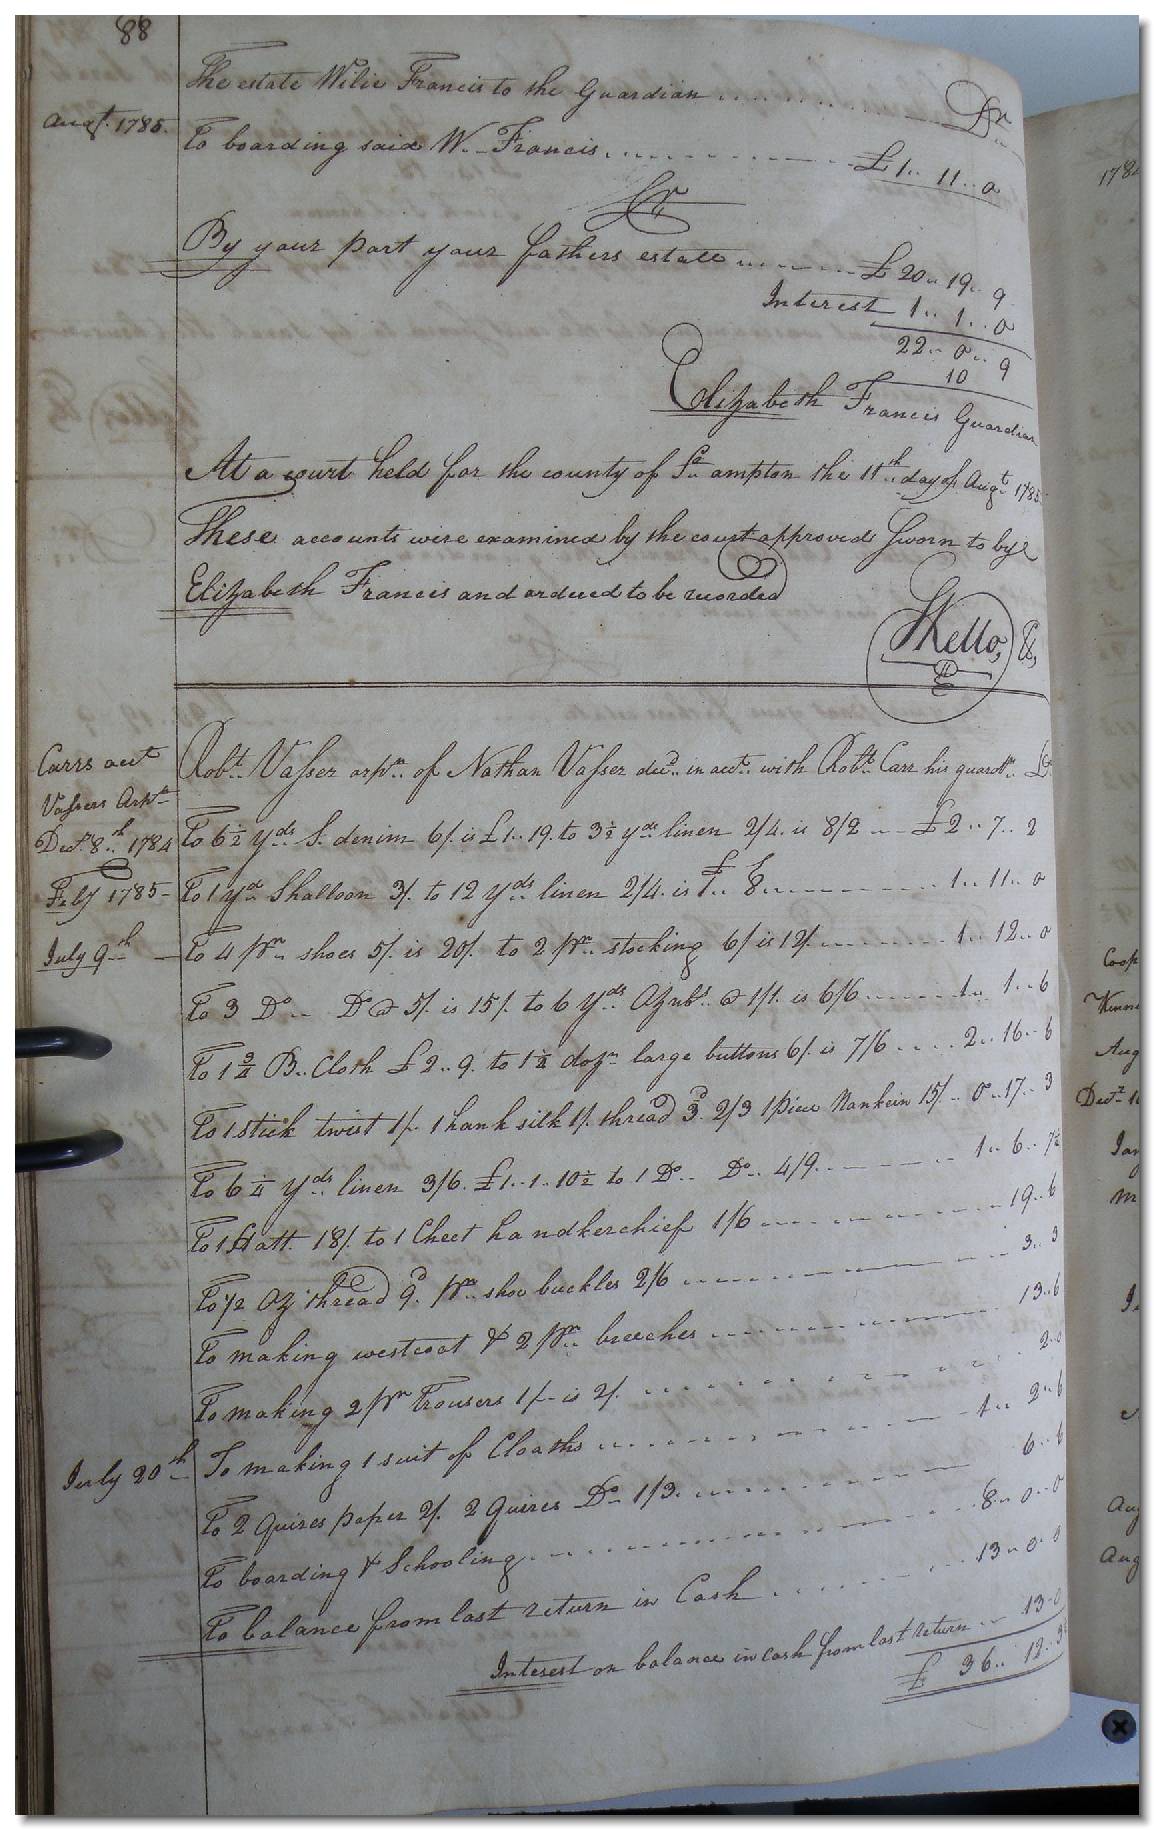 88
The estate Wilie Francis to the Guardian ........ Dr
Augt. 1785.
To boarding said W.. Francis ........ £1.. 11.. 0
Cr
By your part your fathers estate ........ £20.. 19.. 9
Interest 1.. 1.. 0
22.. 0.. 9
10
Elizabeth Francis Guardian
At a court held for the county of So.. ampton the 11th.. day of Augt. 1785
These accounts were examined by the court approved Sworn to by
Elizabeth Francis and ordered to be recorded
SKello, Cc,
Carrs acct
Vassers Orpn
Robt.. Vasser orpn.. of Nathan Vasser decd.. in acct.. with Robt. Carr his guardn.. Dr
Decr. 8th.. 1784 To 6½ yds S. denim 6/. is £1.. 19. to 3½ yds linen 2/4. is 8/2 ... £2.. 7.. 2
Feby 1785- To 1 yd Shalloon 3/. to 12 yds linen 2/4. is £1.. S8 ........ 1.. 11.. 0
July 9th.. To 4 pr.. shoes 5/. is 20/. to 2 pr.. stocking 6/ is 12/. ........ 1.. 12.. 0
To 3 Do.. Do @ 5/. is 15/. to 6 yds Oznbs. @ 1/1. is 6/6 ........ 1.. 1.. 6
To 1¾ B.. Cloth £2.. 9. to 1¼ dozn large buttons 6/. is 7/6 .... 2.. 16.. 6
To 1 stick twist 1/. 1 hank silk 1/. thread 3d. 2/3 1 piece Nankein 15/.. 0.. 17.. 3
To 6¼ yds linen 3/6. £1.. 1.. 10½ to 1 Do.. Do.. 4/9 ........ 1.. 6.. 7½
To 1 Hatt. 18/. to 1 Check handkerchief 1/6 ........ 19.. 6
To ½ Oz thread 9d. pr.. shoe buckles 2/6 ........ 3.. 3
To making westcoat & 2 pr.. breeches ........ 13.. 6
To making 2 pr Trousers 1/- is 2/. ........ 2.. 0
July 20th.. To making 1 suit of Cloaths ........ 1.. 2.. 6
To 2 Quires paper 2/. 2 Quires Do.. 1/3. ........ 6.. 6
To boarding & Schooling ........ 8.. 0.. 0
To balance from last return in Cash ........ 13.. 0.. 0
Interest on balance in cash from last return ... 13.. 0
£ 36.. 12.. 3
1784
Coop
Aug
Decr. 1
Jan
Aug
Aug